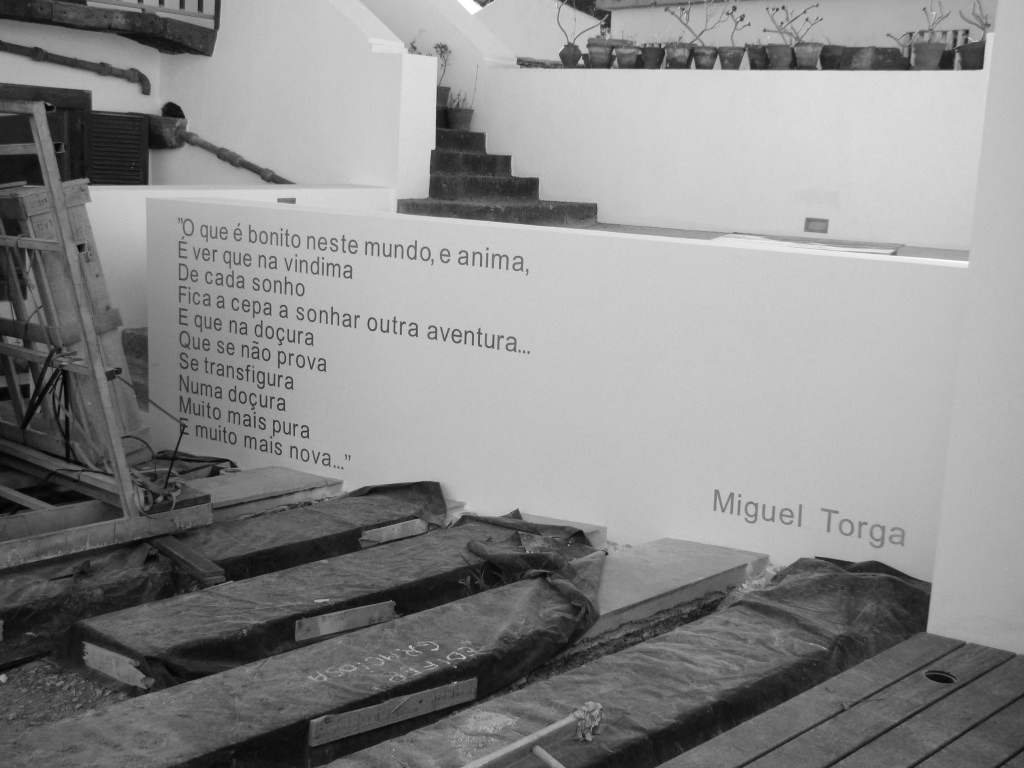 "O que é bonito neste mundo, e anima,
É ver que na vindima
De cada sonho
Fica a cepa a sonhar outra aventura...
E que na doçura
Que se não prova
Se transfigura
Numa doçura
Muito mais pura
E muito mais nova..."
Miguel Torga